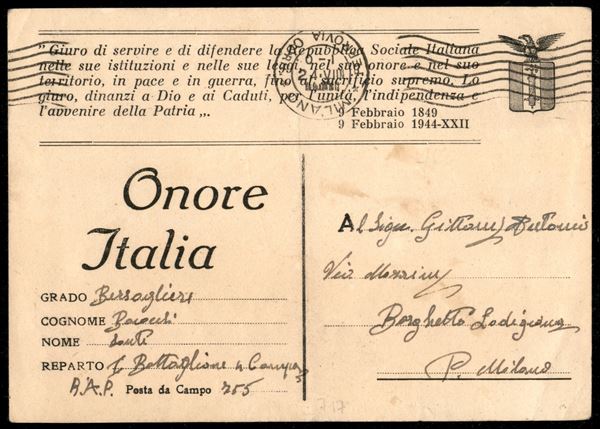 "Giuro di servire e di difendere la Repubblica Sociale Italiana
nelle sue istituzioni e nelle sue leggi, nel suo onore e nel suo
territorio, in pace e in guerra, fino al sacrificio supremo. Lo
giuro, dinanzi a Dio e ai Caduti, per l'unità, l'indipendenza e
l'avvenire della Patria „.
9 Febbraio 1849
9 Febbraio 1944-XXII
MILANO
FERROVIA
Onore
Italia
GRADO Bersagliere
COGNOME
NOME
REPARTO I Battaglione
B.A.P. Posta da Campo 755
Al Sign. Antonio
Via
Borghetto Lodigiano
P. Milano
717